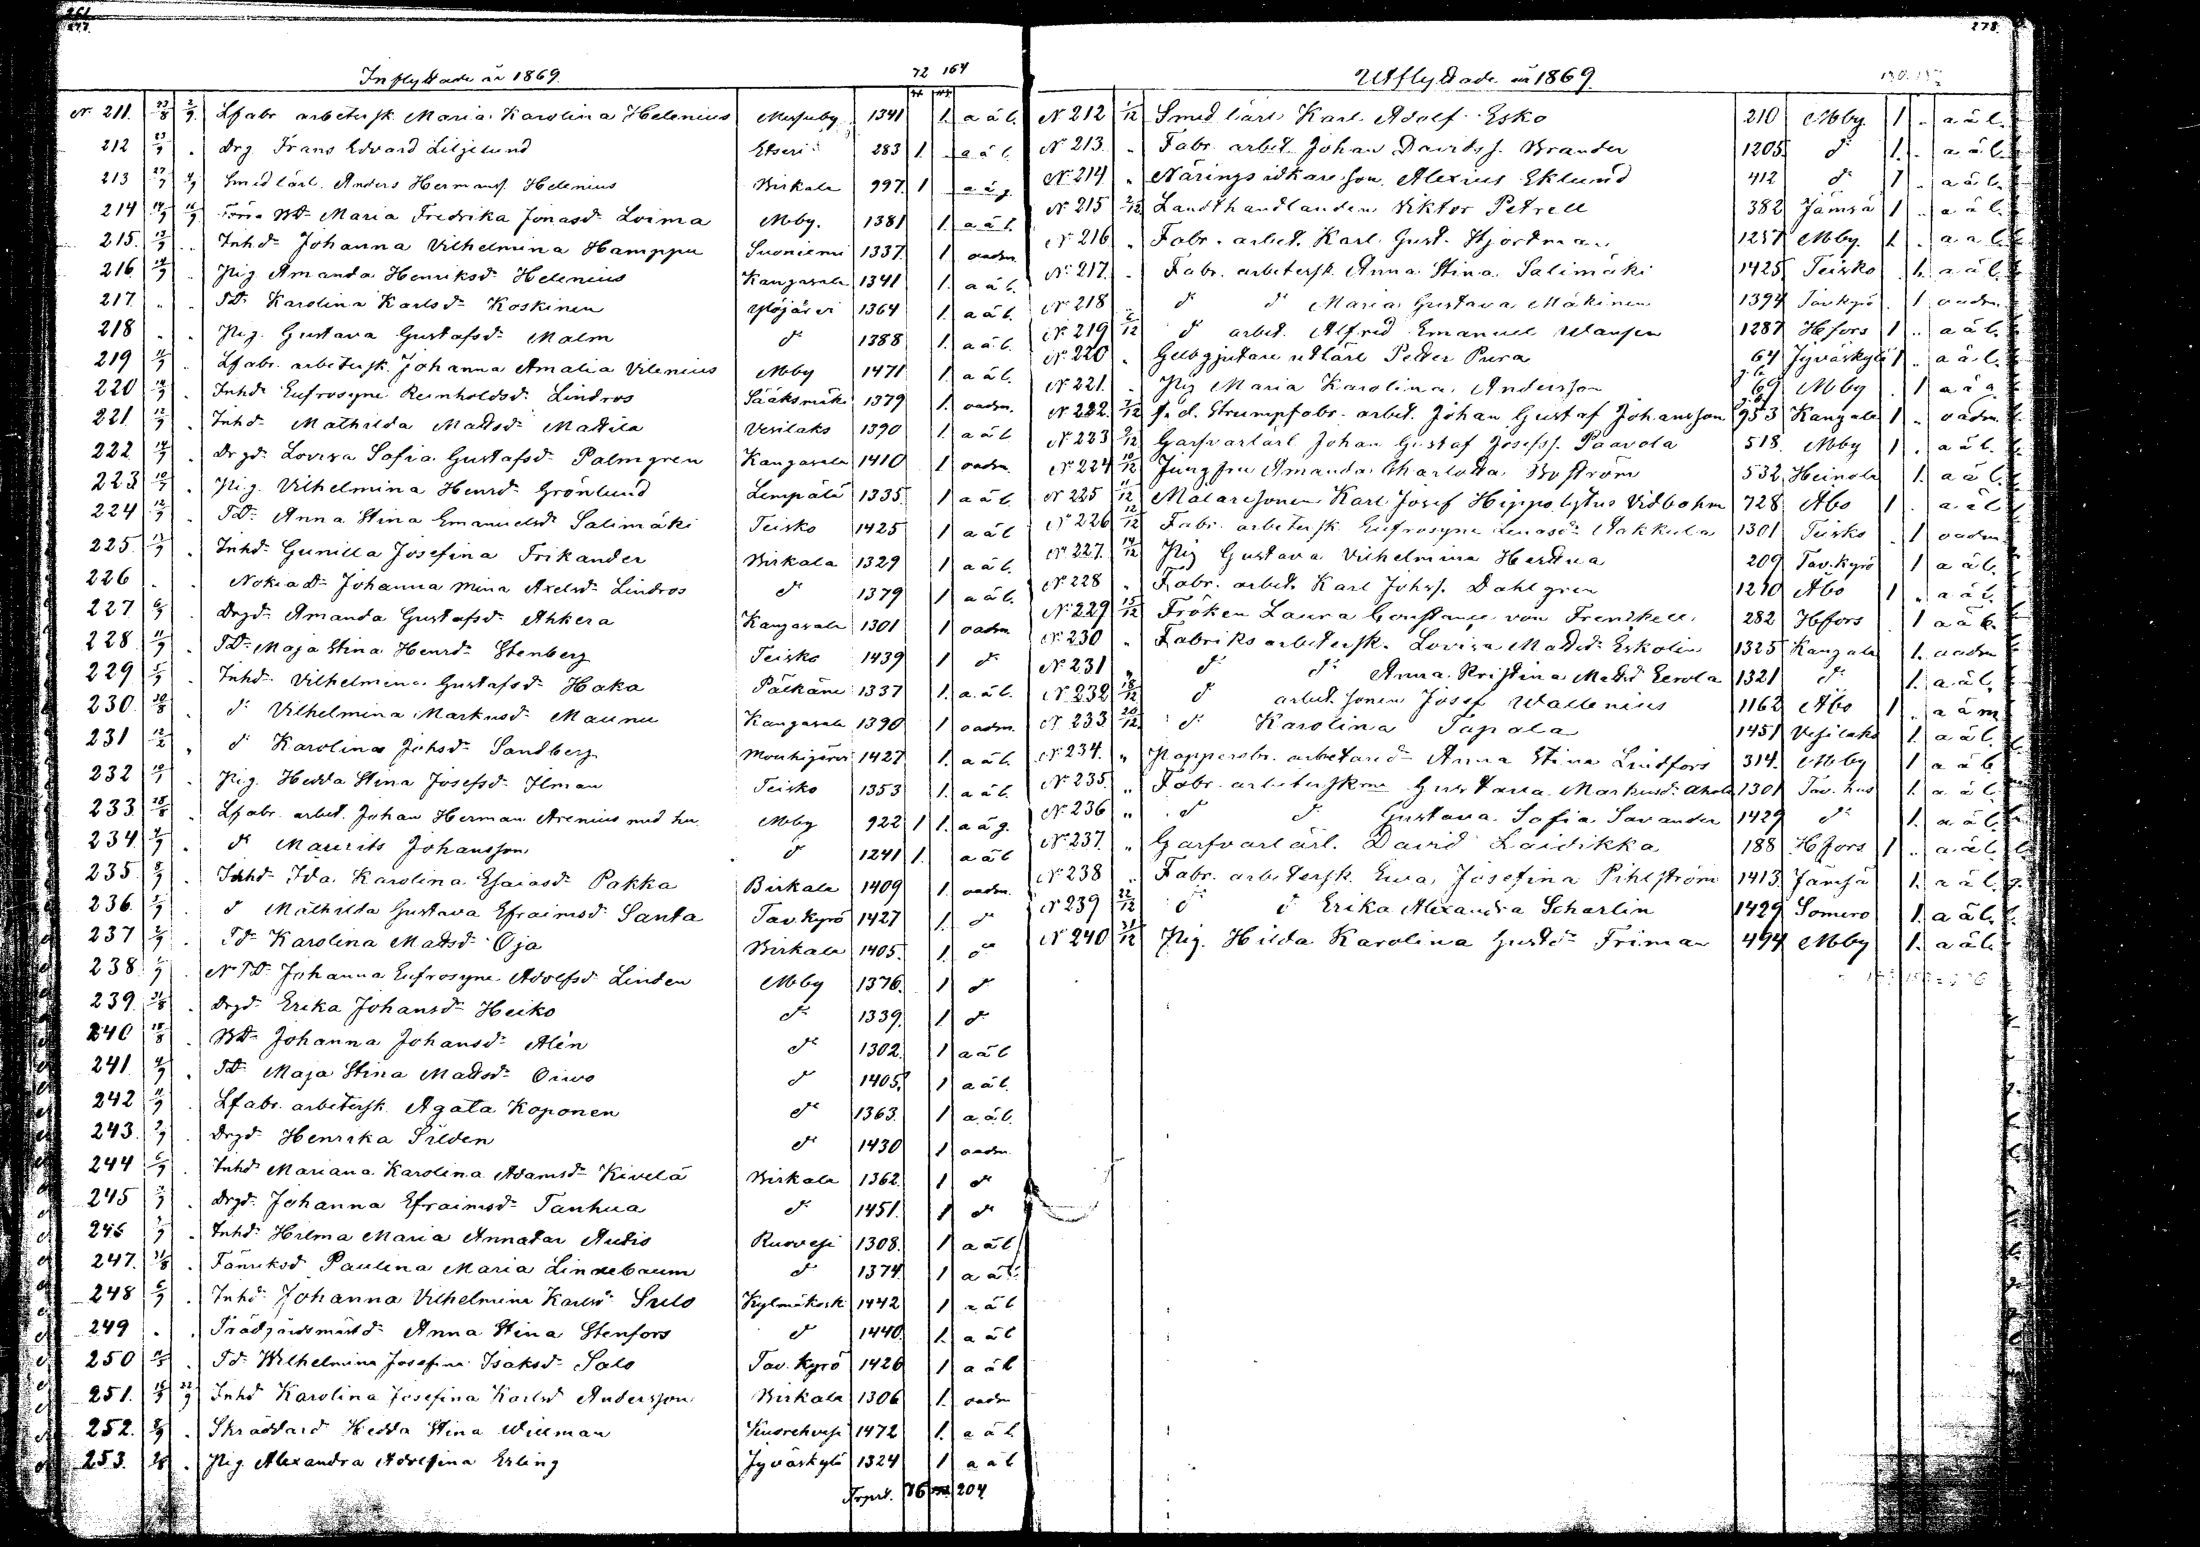 261
277.
Inflyttade år 1869.
72 164
№ 211. 23/8 2/9. Lfabr. arbetersk. Maria Karolina Helenius Messuby 1341 1. a ä l.
212 23/9 . Drg. Frans Edvard Liljelund Etseri 283 1. a ä l.
213 27/7 4/9 Smidlärl. Anders Hermans. Helenius Birkala 997. 1 a ä g.
214 14/9 16/9 BD Maria Fredrika Jonasdr Loima Mby. 1381 1. a ä l.
215. 13/9 .. Inhdr Johanna Vilhelmina Hamppu Suoniemi 1337. 1 oadm.
216 14/9 . Pig Amanda Henriksdr Helenius Kangasala 1341 1. a ä l.
217 . . TD. Karolina Karlsdr Koskinen Ylöjärvi 1364 1. a ä l.
218 . . Pig. Gustava Gustafsdr Malm dr 1388 1. a ä l.
219 . Lfabr. arbetersk. Johanna Amalia Vilenius Mby 1471 1 a ä l.
220 14/9 . Inhdr Eufrosyne Reinholdsdr Lindros Sääksmäki 1379 1. oadm.
221. 12/9 . Inhdr Mathilda Mattsdr Mattila Vesilaks 1390 1. a ä l
222 14/9 . Drgdr Lovisa Sofia Gustafsdr Palmgren Kangasala 1410 1 oadm.
223 10/9 . Pig. Vilhelmina Henrdr Grönlund Lempälä 1335. 1 a ä l.
224 12/9 . TDr Anna Stina Emanuelsdr Salimäki Teisko 1425 1 a ä l
225. 13/9 . Inhdr Gunilla Josefina Frikander Birkala 1329 1 a ä l.
226 . . Nokiadr Johanna Mina Axelsdr Lindros dr 1379 1 a ä l.
227 6/9 . Drgdr Amanda Gustafsdr Ahkera Kangasala 1301 1 oadm
228. 11/9 . TDr Maja Stina Henrdr Stenberg Teisko 1439 1 dr
229 5/9 . Inhdr Vilhelmina Gustafsdr Haka Pälkäne 1337 1. a ä l.
230 30/8 . dr Vilhelmina Markusdr Maunu Kangasala 1390 1 oadm.
231 12/2 . dr Karolina Johsdr Sandberg Mouhijärvi 1427 1. a ä l.
232 . Pig. Hedda Stina Josefsdr Ilman Teisko 1353 1. a ä l.
233. 28/8 . Lfabr. arbet. Johan Herman Arenius med hu Mby 922 1 1. a ä g.
234. 4/9 . dr Maurits Johansson dr 1241 1. a ä l
235. 8/9 . Inhdr Ida Karolina Esaiasdr Pakka Birkala 1409 1. oadm.
236. . dr Mathilda Gustava Efraimsdr Santa Tav. Kyrö 1427 1. dr
237 . Tdr Karolina Mattsdr Oja Birkala 1405. 1. dr
238. . NTDr Johanna Eufrosyne Adolfsdr Linden Mby 1376. 1 dr
239. 31/8 . Drgdr Erika Johansdr Heiko dr 1339. 1. dr
240 18/8 . BDr Johanna Johansdr Alén dr 1302. 1 a ä l
241 4/9 . TDr Maja Stina Mattsdr Oiwo dr 1405. 1 a ä l.
242 11/9 . Lfabr. arbetersk. Agata Koponen dr 1363. 1 a ä l.
243. . Drgdr Henrika Silden dr 1430 1 oadm.
244 6/9 . Inhdr Mariana Karolina Adamsdr Kivelä Birkala 1362. 1 dr
245 . Drgdr Johanna Efraimsdr Tanhua dr 1451. 1 dr
246 . Inhdr Hilma Maria Annadar Audio Ruovesi 1308. 1 a ä l
247. 31/8 . Fänriksdr Paulina Maria Lindebaum dr 1374. 1 a ä l.
248 6/9 . Inhdr Johanna Vilhelmina Karlsdr Sulo Kylmäkosk 1442 1 a ä l
249 . . Trädgårdsmästdr Anna Stina Stenfors dr 1440. 1. a ä l
250 . Tdr Wilhelmina Josefina Isaksdr Salo Tav. Kyrö 1426 1 a ä l
251. 16/9 22/9 Inhdr Karolina Josefina Karlsdr Andersson Birkala 1306 1. oadm
252. 8/9 . Skräddard Hedda Stina Willman Kuorehvesi 1472 1. a ä l
253. . Pig. Alexandra Adolfina Erling Jyväskylä 1324 1 a ä l
Trprt. 76 204.
278.
Utflyttade år 1869.
№ 212 1/12 Smidlärl. Karl Adolf Esko 210 Mby. 1 . a ä l.
№ 213. . Fabr. arbet. Johan Davidss. Brander 1205. dr 1. . a ä l.
№ 214 . Näringsidkareson. Alexius Eklund 412 dr 1 . a ä l.
№ 215 2/12 Landthandlanden Viktor Petrell 382 Jämsä 1 .. a ä l.
№ 216 . Fabr. arbet. Karl Gust. Hjortman 1257 Mby. 1. . a ä l.
№ 217. . Fabr. arbetersk. Anna Stina Salimäki 1425 Teisko . 1. a ä l.
№ 218 . dr dr Maria Gustava Mäkinen 1394 Tavkyrö . 1 oadm.
№ 219 6/12 dr arbet. Alfred Emanuel Wansen 1287 Hfors 1 .. a ä l.
№ 220 . Gelbgjutare utlärl Petter Pura 64 Jyväskylä 1 . a ä l.
№ 221. . Pig Maria Karolina Andersson 69 Mby . 1 a ä g
№ 222. 7/12 f. d. Strumpfabr. arbet. Johan Gustaf Johansson 953 Kangala 1 . oadm.
№ 223 9/12 Garfvarlärl Johan Gustaf Josefss. Paavola 518. Mby 1 . a ä l.
№ 224 10/12 Jungfru Amanda Charlotta Boström 532. Heinola 1. a ä l.
№ 225 11/12 Målaresonen Karl Josef Hippolytus Vidbohm 728 Åbo 1 . a ä l
№ 226 12/12 Fabr. arbetersk. Eufrosyne Akkula 1301 Teisko . 1 oadm.
№ 227. 14/12 Pig Gustava Vilhelmina Herttua 209 Tav. Kyrö 1 a ä l.
№ 228 . Fabr. arbet. Karl Johss. Dahlgren 1210 Åbo 1 . a ä l.
№ 229 15/12 Fröken Laura Constance von Frenckell 282 Hfors . 1 a ä k.
№ 230 . Fabriksarbetersk. Lovisa Mattsdr Eskolin 1325 Kangala 1. oadm
№ 231 „ dr dr Anna Kristina Mattsd Eerola 1321 dr 1. a ä l.
№ 232 18/12 dr arbet. sonen Josef Wallenius 1162 Åbo 1 . a ä m
№ 233 20/12 dr Karolina Tapola 1451 Vesilaks 1. a ä l.
№ 234. „ Pappersbr. arbetaredr Anna Stina Lindfors 314. Mby 1 a ä l.
№ 235. „ Fabr. arbeterskan Gustava Markusdr Ahola 1301 Tav. hus 1. a ä l.
№ 236 „ dr dr Gustava Sofia Savander 1429 dr 1. a ä l.
№ 237. „ Garfvarlärl. David Laidikka 188 Hfors 1 .. a ä l.
№ 238 „ Fabr. arbetersk. Ewa Josefina Pihlström 1413. Jämsä 1. a ä l.
№ 239 22/12 dr dr Erika Alexandra Scharlin 1429 Somero 1. a ä l.
№ 240 31/12 Pig. Hilda Karolina Gustdr Friman 494 Mby 1. a ä l.